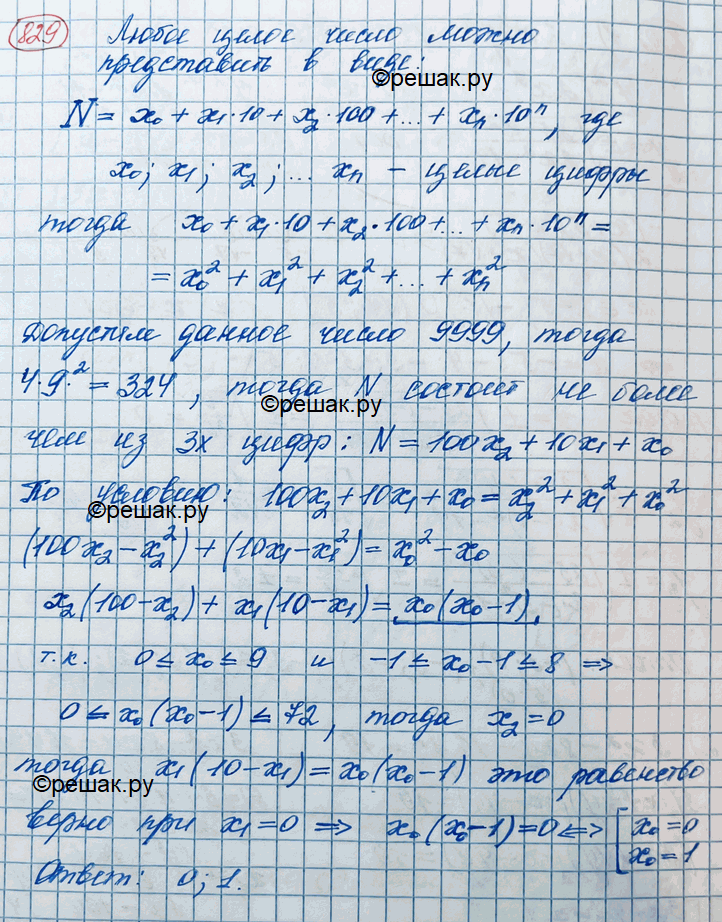 829 Любое целое число можно
представить в виде:
©решак.ру
N = x₀ + x₁·10 + x₂·100 + ... + xₙ·10ⁿ, где
x₀; x₁; x₂; ... xₙ – целые цифры
тогда x₀ + x₁·10 + x₂·100 + ... + xₙ·10ⁿ =
= x₀² + x₁² + x₂² + ... + xₙ²
Допустим данное число 9999, тогда
4·9² = 324, тогда N состоит не более
©решак.ру
чем из 3х цифр: N = 100x₂ + 10x₁ + x₀
По условию: 100x₂ + 10x₁ + x₀ = x₂² + x₁² + x₀²
©решак.ру
(100x₂ – x₂²) + (10x₁ – x₁²) = x₀² – x₀
x₂(100 – x₂) + x₁(10 – x₁) = x₀(x₀ – 1)
т.к. 0 ≤ x₀ ≤ 9 и –1 ≤ x₀ – 1 ≤ 8 ⇒
0 ≤ x₀(x₀ – 1) ≤ 72, тогда x₂ = 0
тогда x₁(10 – x₁) = x₀(x₀ – 1) это равенство
©решак.ру
верно при x₁ = 0 ⇒ x₀(x₀ – 1) = 0 ⇔ [x₀ = 0
x₀ = 1
Ответ: 0; 1.